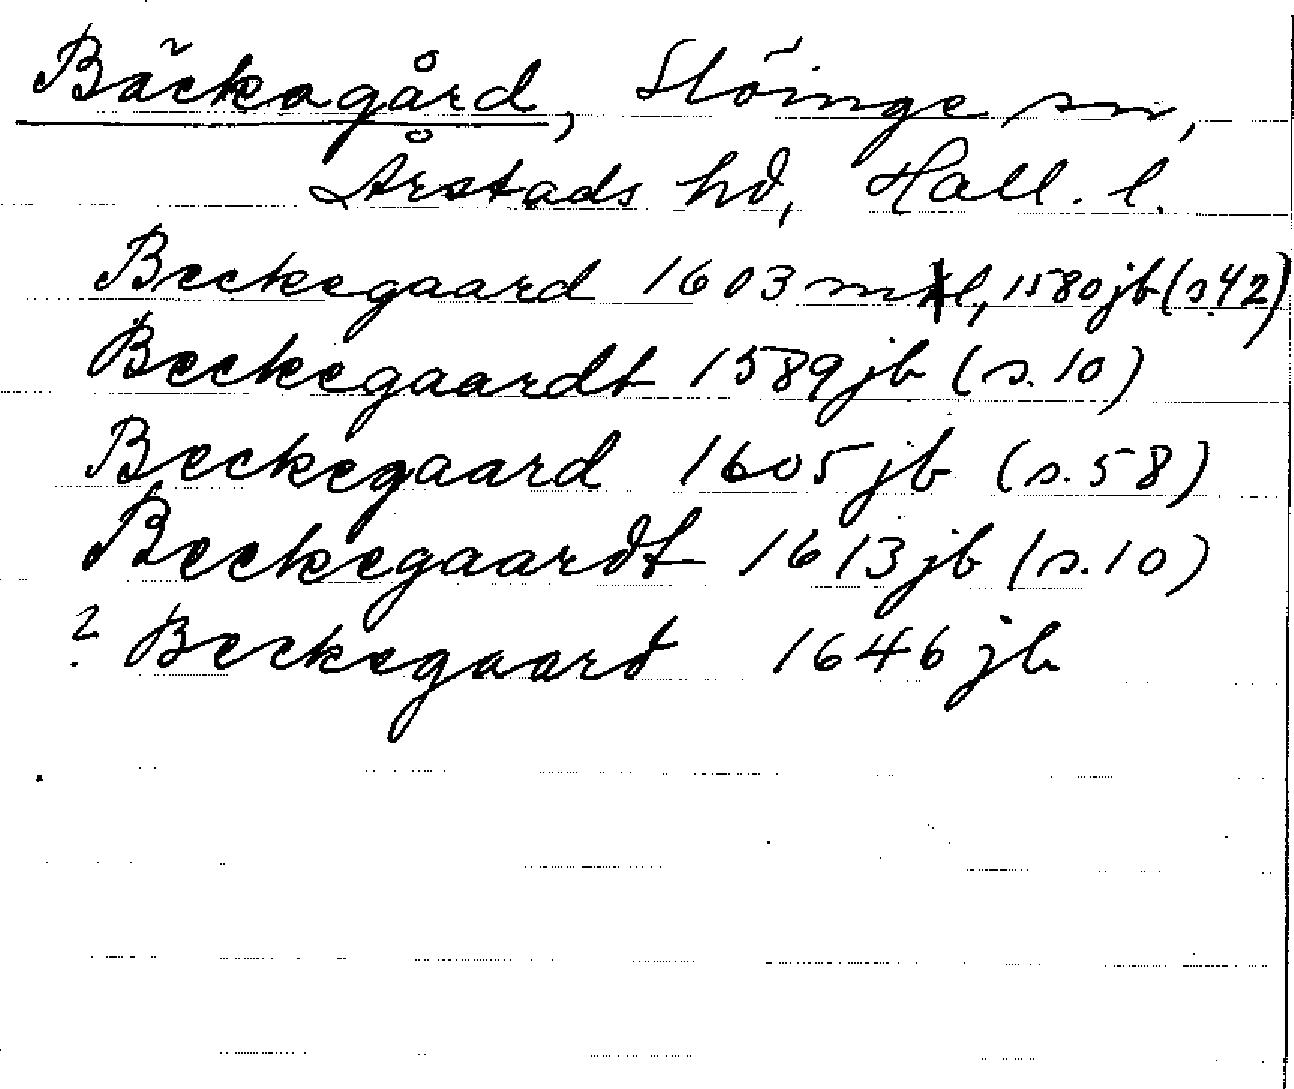 Bäckagård, Slöinge sn,
Årstads hd, Hall. l.
Beckegaard 1603 mtl, 1580 jb (s.42)
Beckegaardt 1589 jb (s.10)
Beckegaard 1605 jb (s.58)
Beckegaardt 1613 jb (s.10)
? Beckegaard 1646 jb